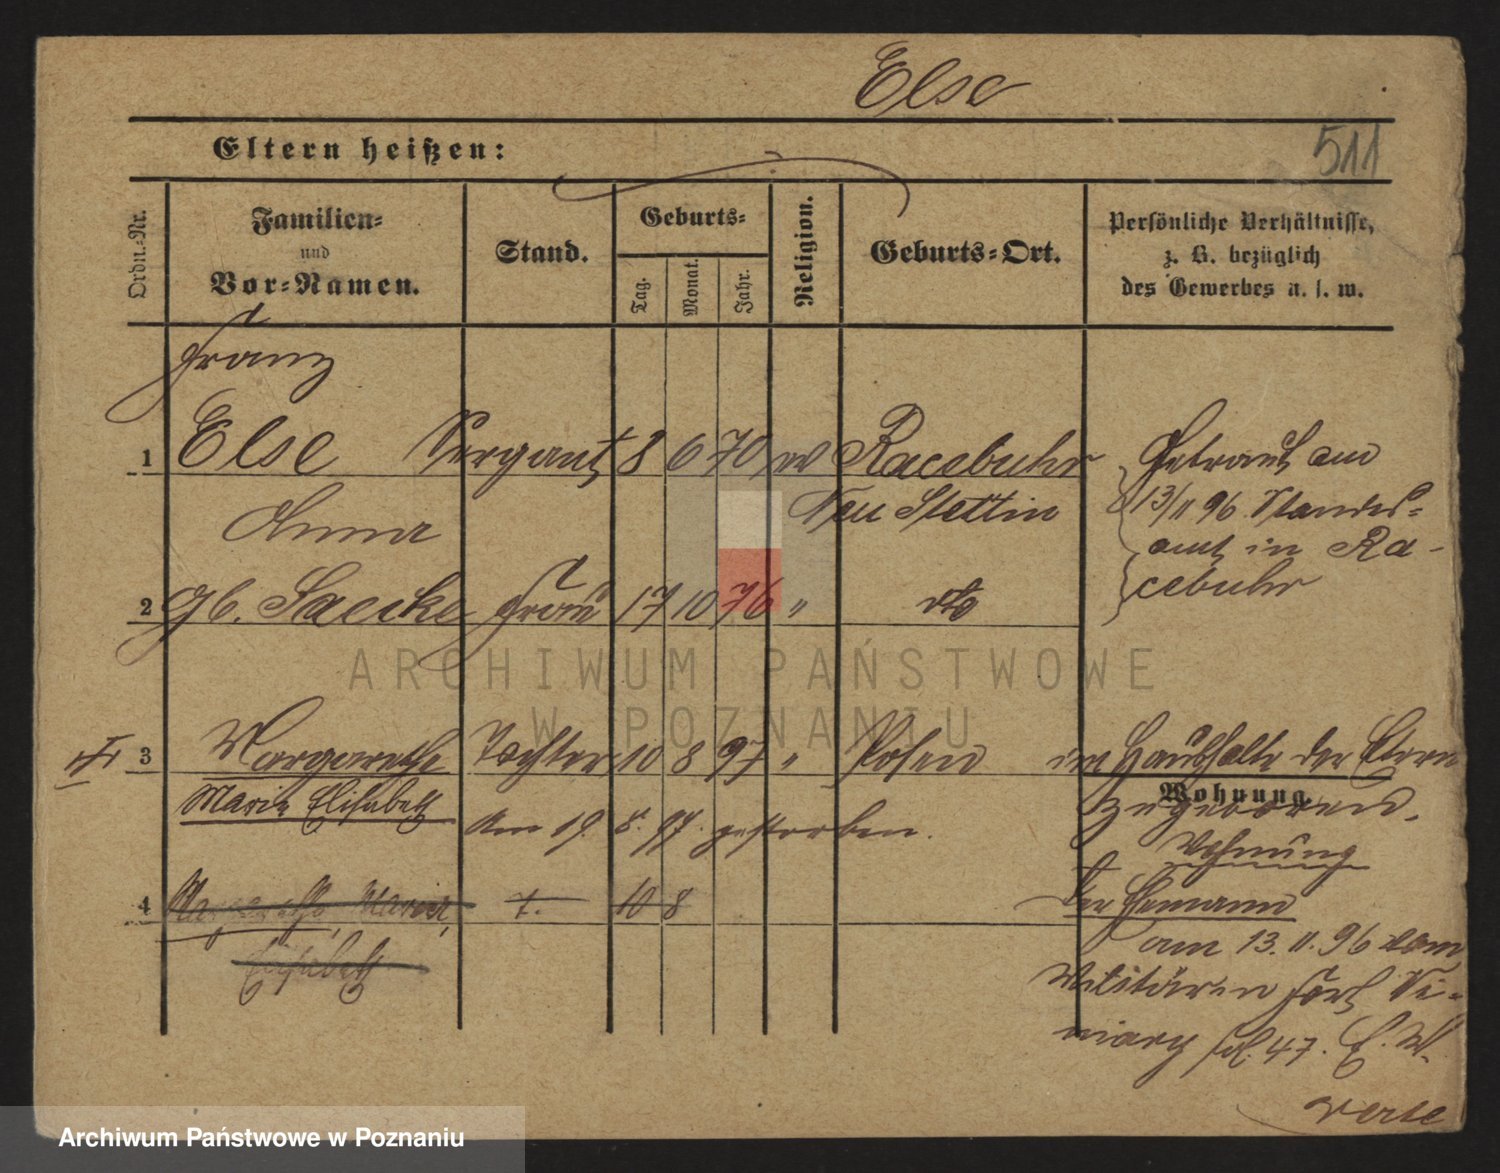 Else
511
Eltern heißen:
Ordn.-Nr.
Familien-
und
Vor-Namen.
Stand.
Geburts-
Tag.
Monat.
Jahr.
Religion.
Geburts-Ort.
Persönliche Verhältnisse,
z. B. bezüglich
des Gewerbes u. s. w.
Franz
1 Else Sergant 8 6 70 ev Racebuhr
Neu Stettin
Getraut am
13/11 96 Standes-
amt in Ra-
cebuhr
Anna
2 gb. Saecke Frau 17 10 76 " dto
3 Margarethe Tochter 10 8 97 " Posen im Haushalte der Eltern
Marie Elisabeth
Am 19. 8. 97. gestorben.
Wohnung
zugeboren.
Wohnung
4 Margarethe, Marie, t. 10 8
Elisabeth
Der Ehemann
am 13. 11. 96 vom
Militär in Fort
47.
ARCHIWUM PAŃSTWOWE
W POZNANIU
Archiwum Państwowe w Poznaniu